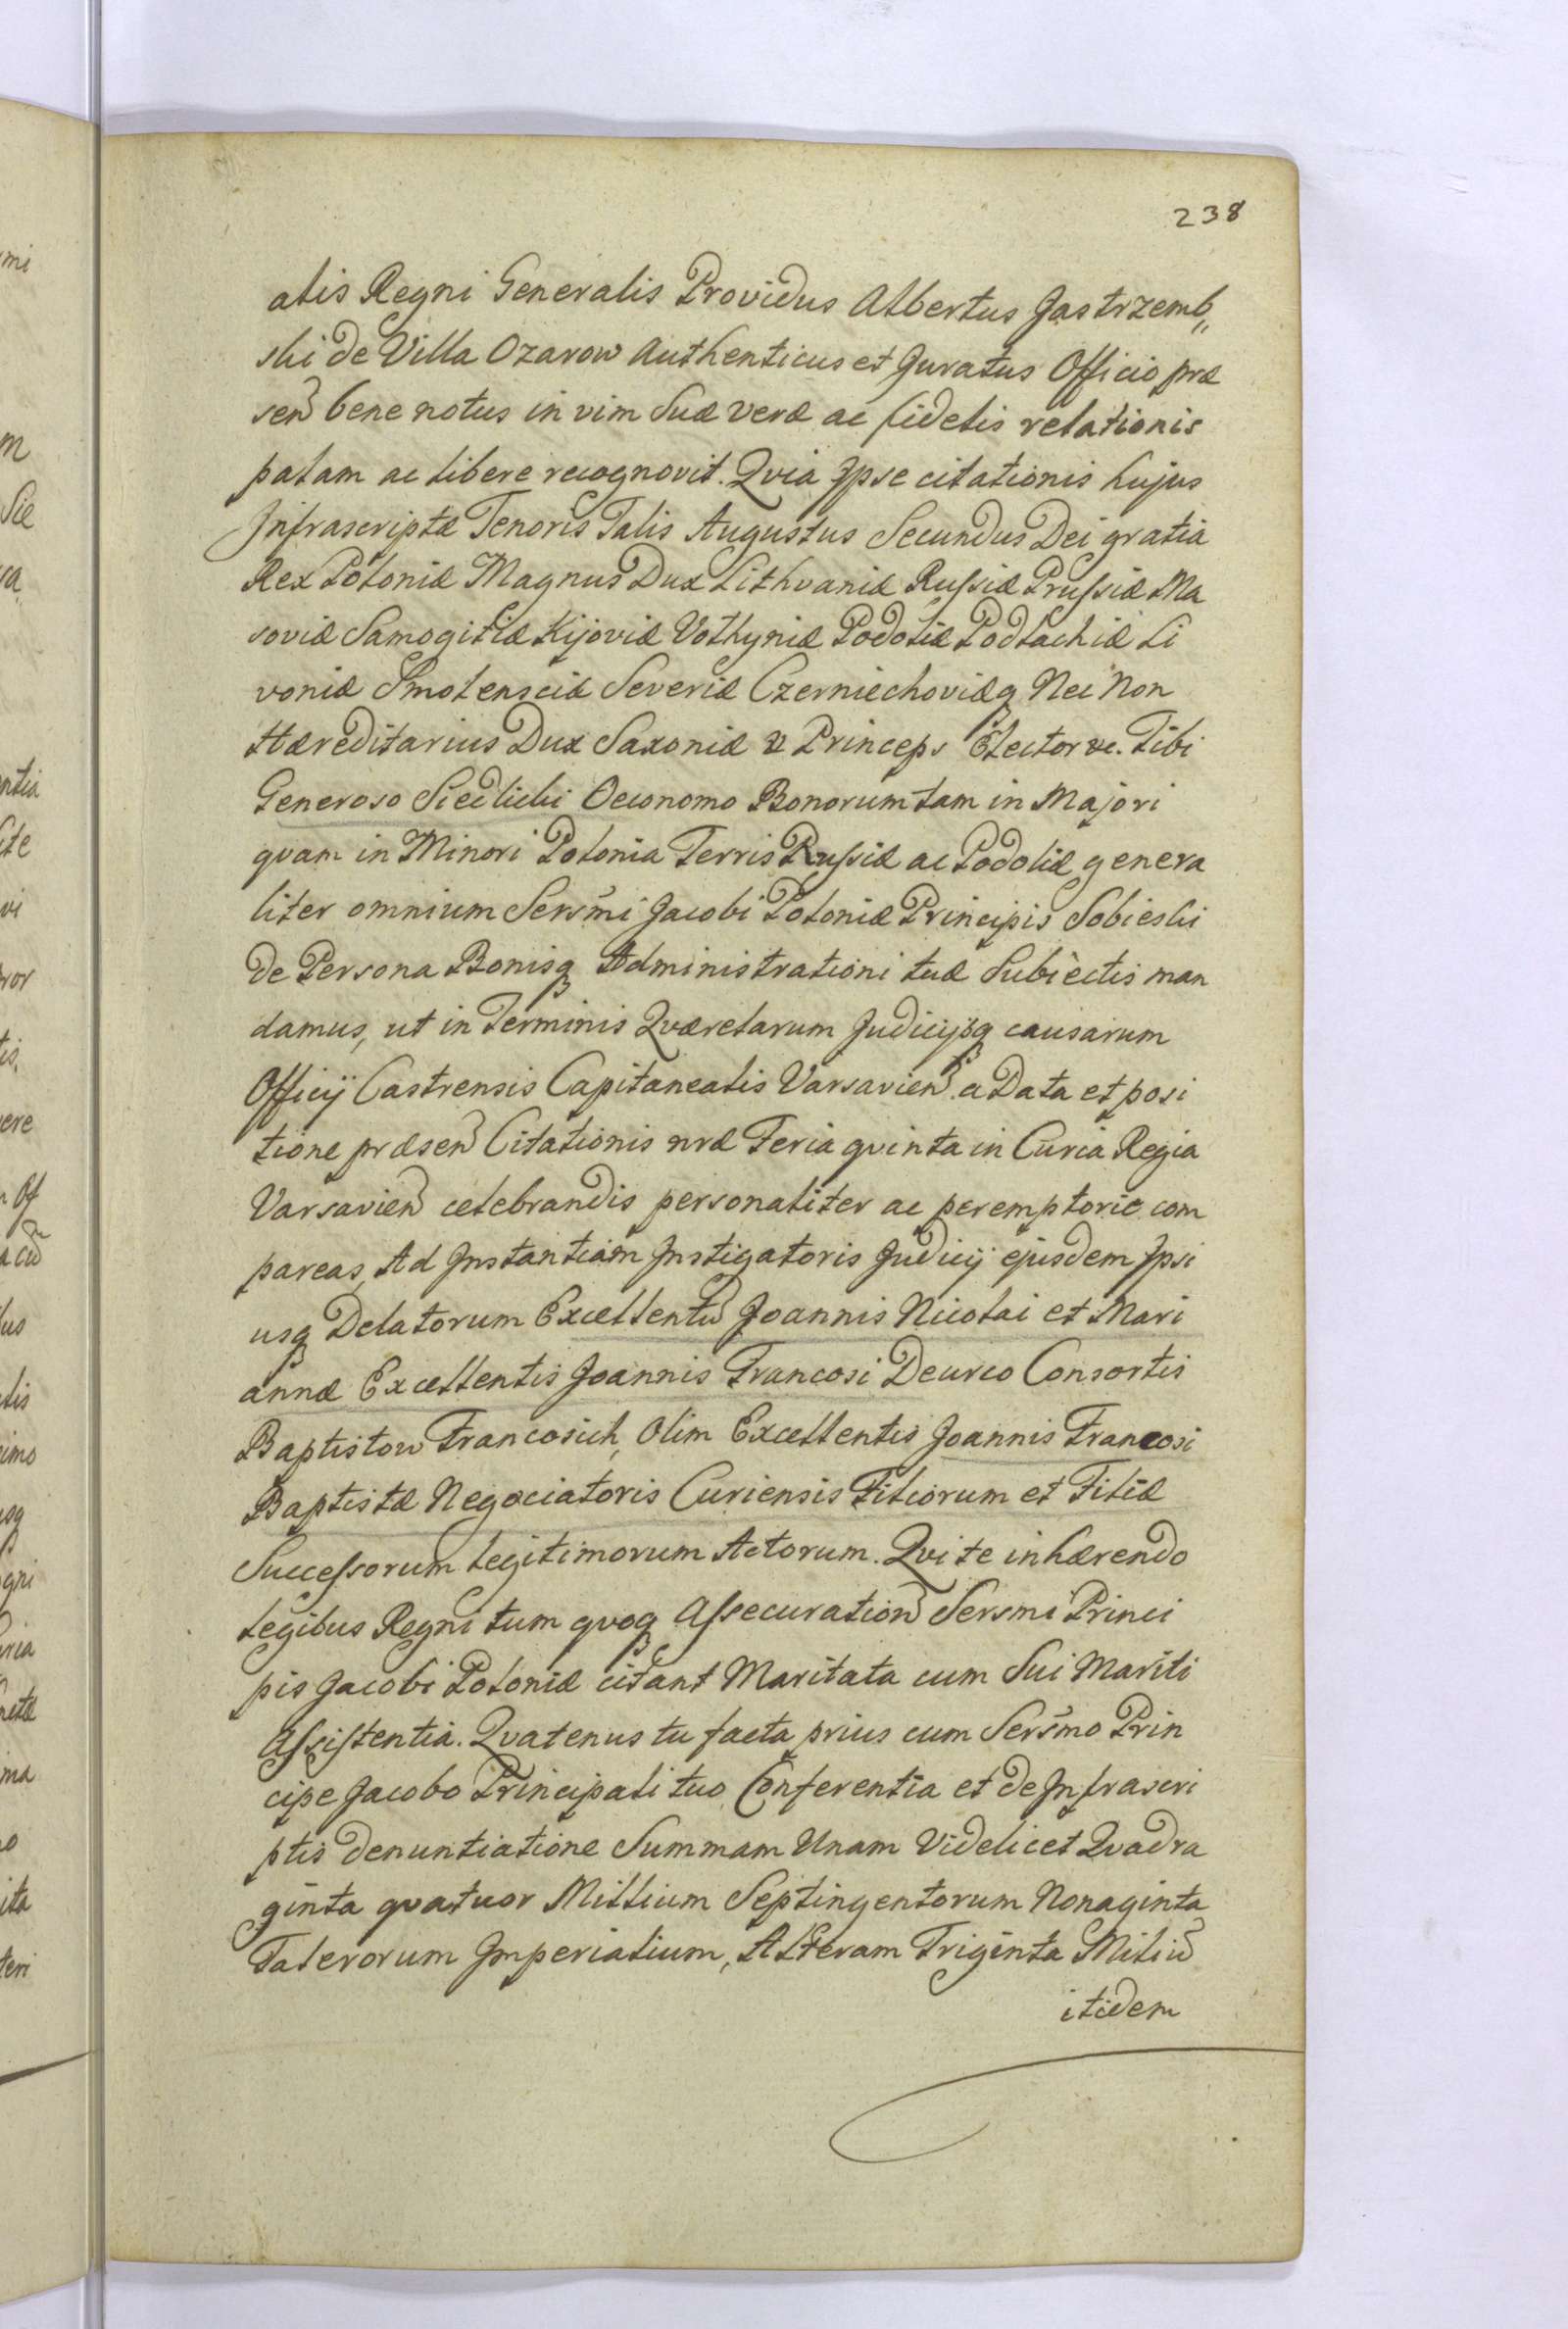 238
alis Regni Generalis Providus Albertus Jastrzemb„
ski de Villa Ozarow Authenticus et Juratus Officio præ
sen̄ bene notus in vim Suæ veræ ac fidelis relationis
palam ac libere recognovit. Qvia Ipse citationis hujus
Infrascriptæ Tenoris Talis Augustus Secundus Dei gratia
Rex Poloniæ Magnus Dux Lithvaniæ Russiæ Prussiæ Ma
soviæ Samogitiæ Kijoviæ Volhyniæ Podoliæ Podlachiæ Li
voniæ Smolensciæ Severiæ Czerniechoviæq Nec Non
Hæreditarius Dux Saxoniæ & Princeps Elector &c. Tibi
Generoso Siedlicki Oeconomo Bonorum tam in Majori
qvam in Minori Polonia Terris Russiæ ac Podoliæ genera
liter omnium Sers̄mi Jacobi Poloniæ Principis Sobieski
de Persona Bonisq Administrationi tuæ Subiectis man
damus, ut in Terminis Qværelarum Judicijsq causarum
Officij Castrensis Capitanealis Varsavien̄ a Data et posi
tione præsen̄ Citationis nræ Feria qvinta in Curia Regia
Varsavien̄ celebrandis personaliter ac peremptorie com
pareas, Ad Instantiam Instigatoris Judicij ejusdem Ipsi
usq Delatorum Excellentū Joannis Nicolai et Mari
annæ Excellentis Joannis Francosi Deurco Consortis
Baptistow Francosich, Olim Excellentis Joannis Francosi
Baptistæ Negociatoris Curiensis Filiorum et Filiæ
Successorum legitimorum Actorum. Qvi te inhærendo
legibus Regni tum qvoq Assecuration̄ Sersmi Princi
pis Jacobi Poloniæ citant Maritata cum Sui Mariti
Assistentia. Qvatenus tu facta prius cum Sers̄mo Prin
cipe Jacobo Principali tuo Conferentia et de Infrascri
ptis denuntiatione Summam Unam Videlicet Qvadra
ginta qvatuor Millium Septingentorum Nonaginta
Talerorum Imperialium, Alteram Triginta Miliū
itidem